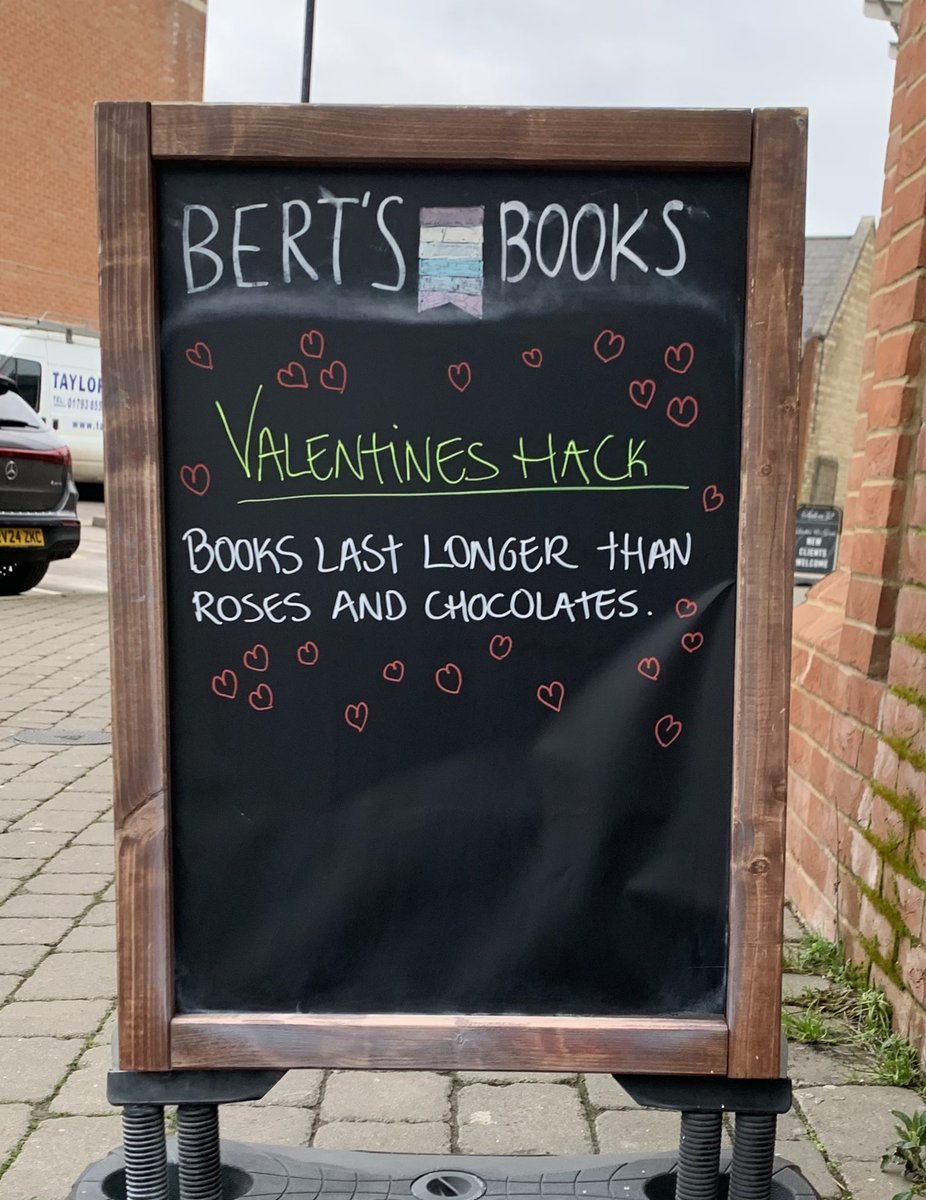 BERT'S BOOKS
VALENTINES HACK
BOOKS LAST LONGER THAN
ROSES AND CHOCOLATES.
TAYLOR
TEL: 01793
www.
V24 ZKC
NEW
CLIENTS
WELCOME